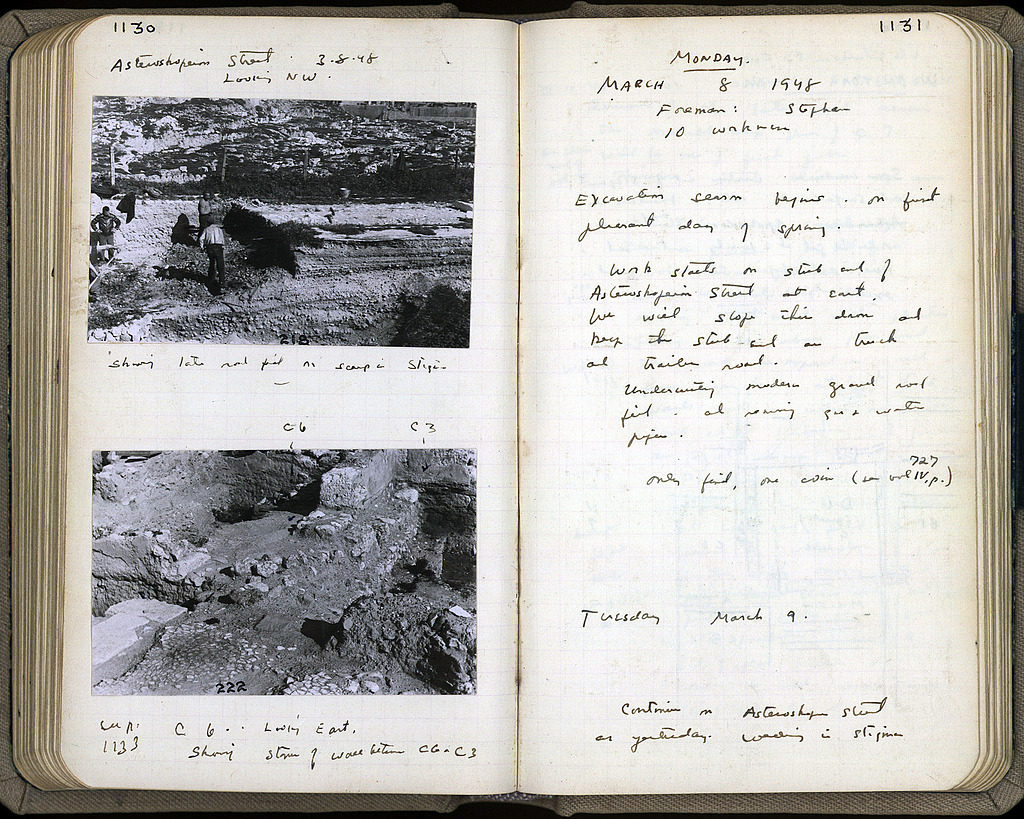 1130
Asteroskopeion Street . 3.8.48
Looking NW.
218
Showing late road fill in scarp in
C6 C3
222
see p. C 6 . . Looking East,
1133 Showing Stones of wall between C6 - C3
1131
MONDAY.
MARCH 8 1948
Foreman: Stephen
10 workmen
Excavation season begins . on first
pleasant day of spring.
Work starts on stub end of
Asteroskopeion Street at east.
We will slope this down and
keep the stub end as truck
and trailer road.
modern gravel road
fill . and removing gas & water
pipes .
727
Only find, one coin (see vol IV, p. )
Tuesday March 9.
Continue on Asteroskopeion Street
as yesterday.